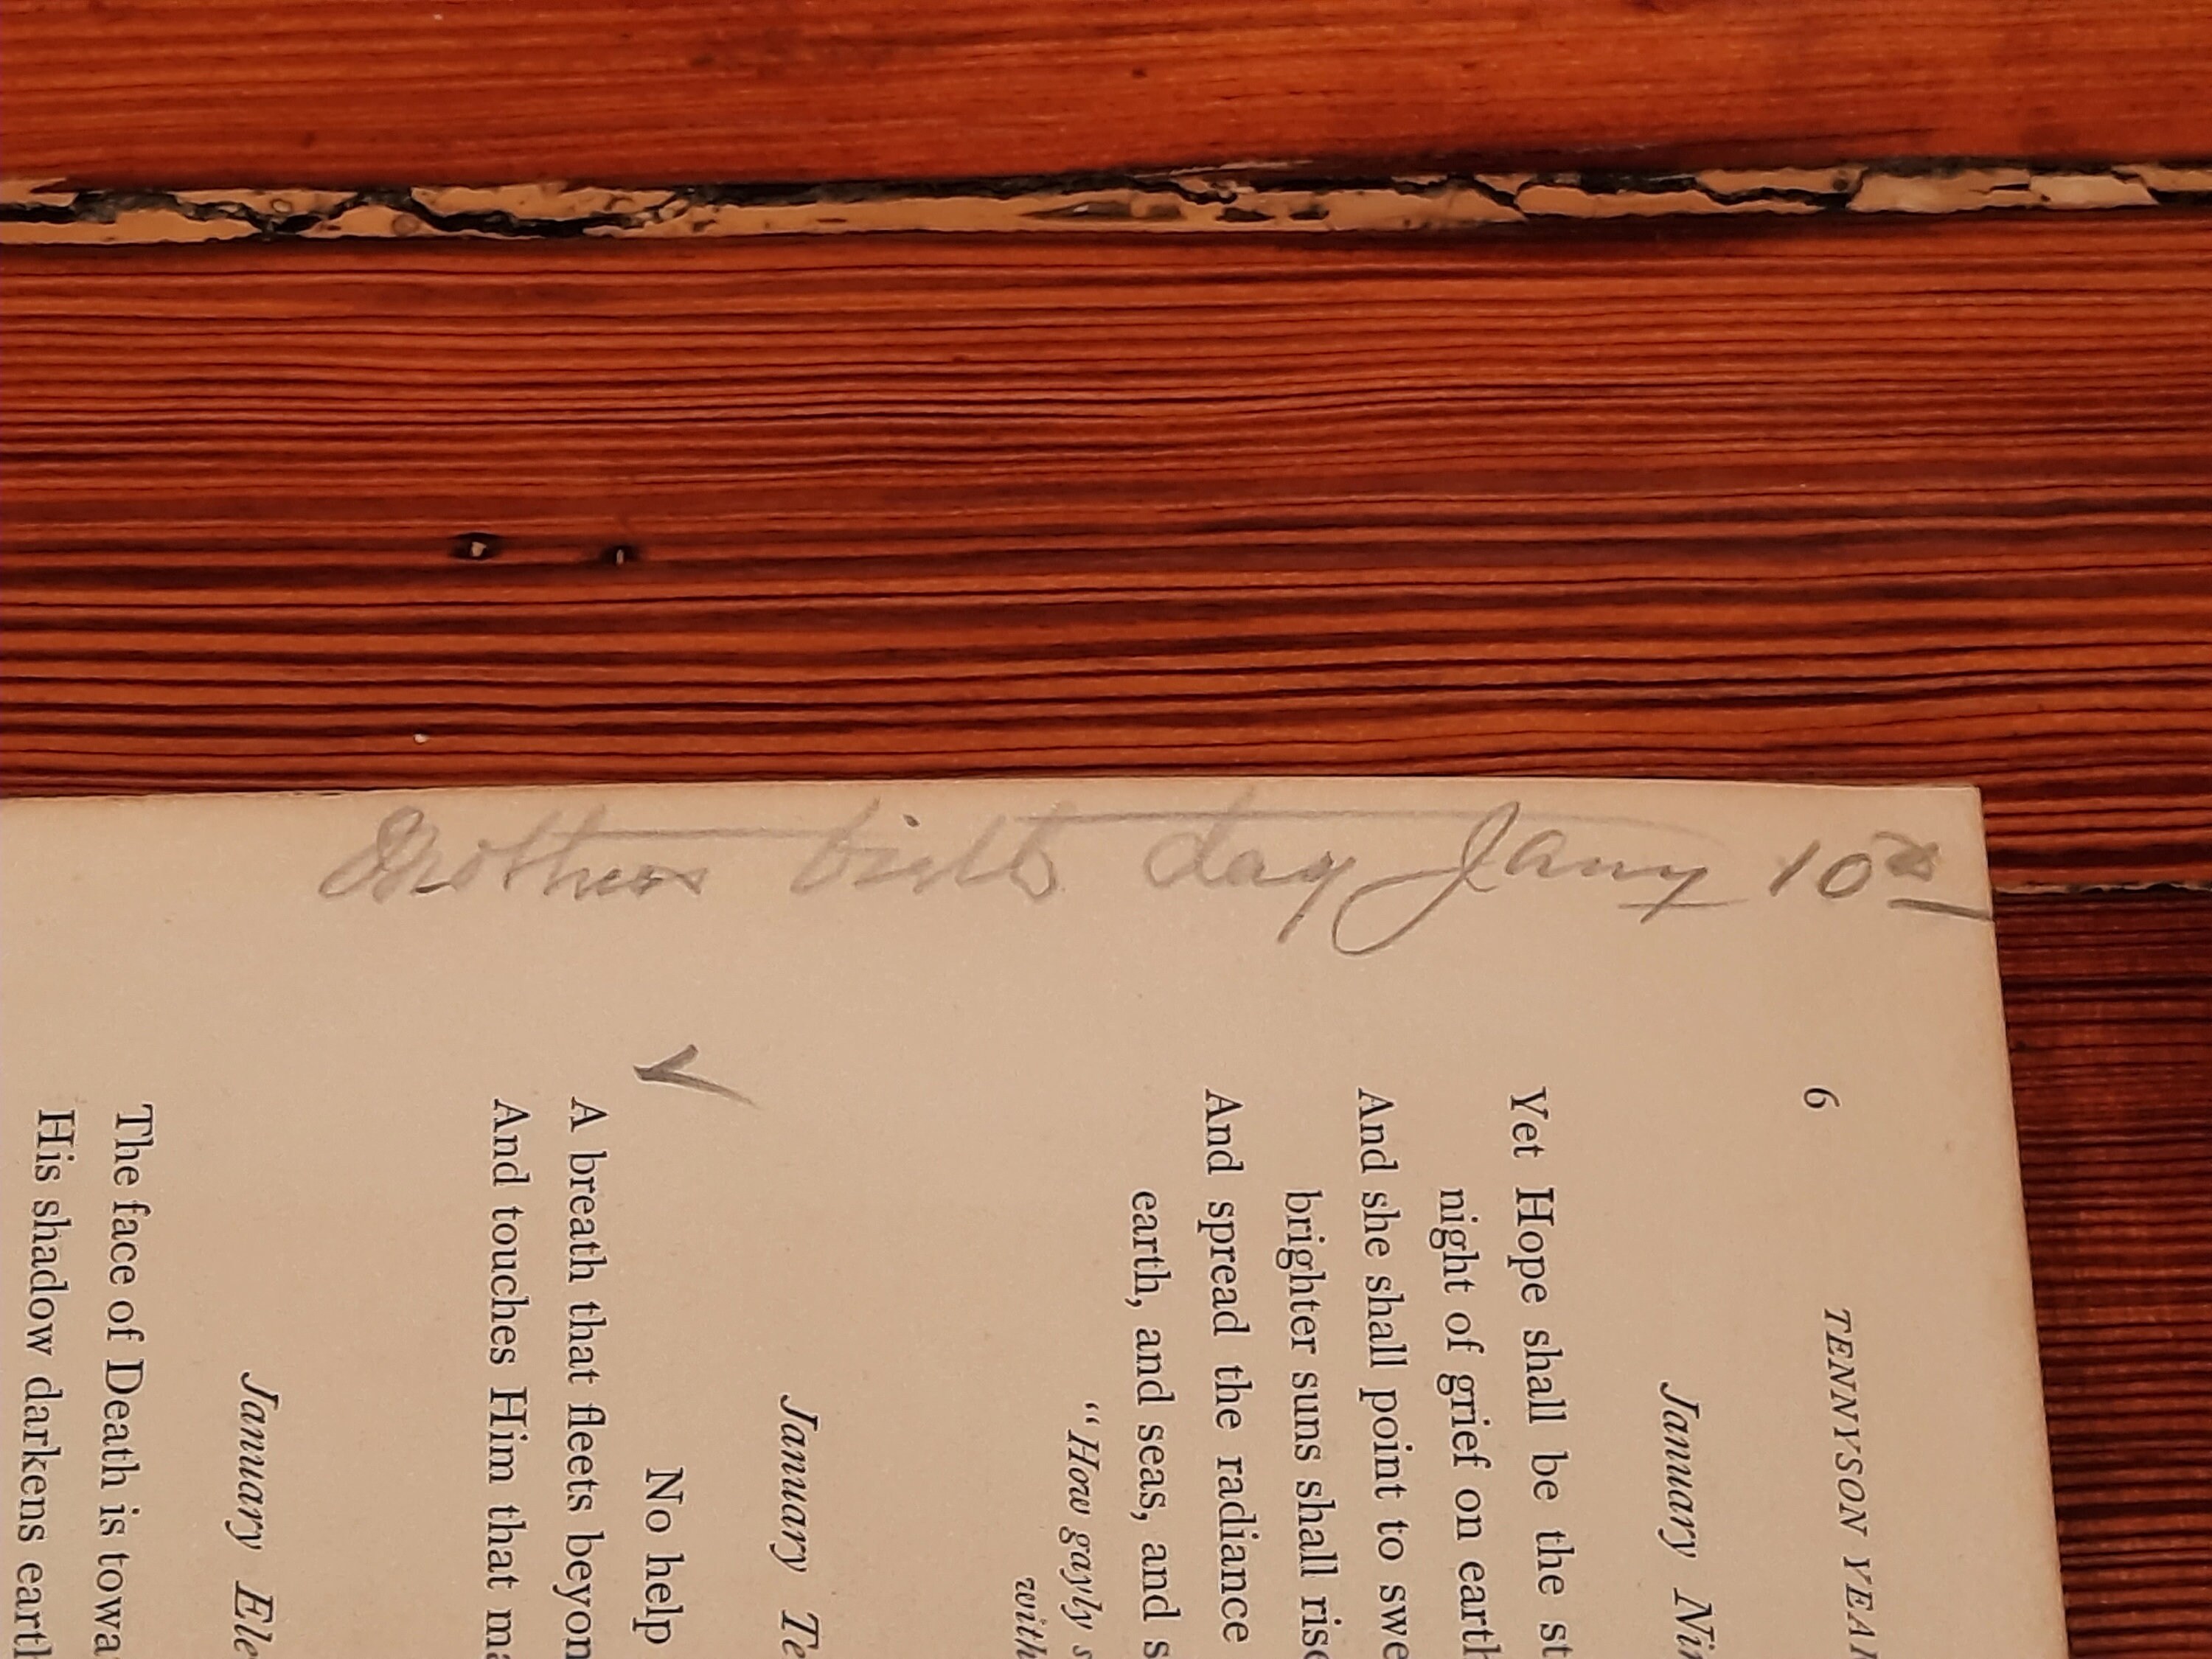 Mothers birth day Jany 10th
6 TENNYSON YEAR
January Nin
Yet Hope shall be the st
night of grief on earth
And she shall point to swe
brighter suns shall rise
And spread the radiance
earth, and seas, and s
"How gayly s
with
January Te
No help
A breath that fleets beyon
And touches Him that ma
January Ele
The face of Death is towa
His shadow darkens earth